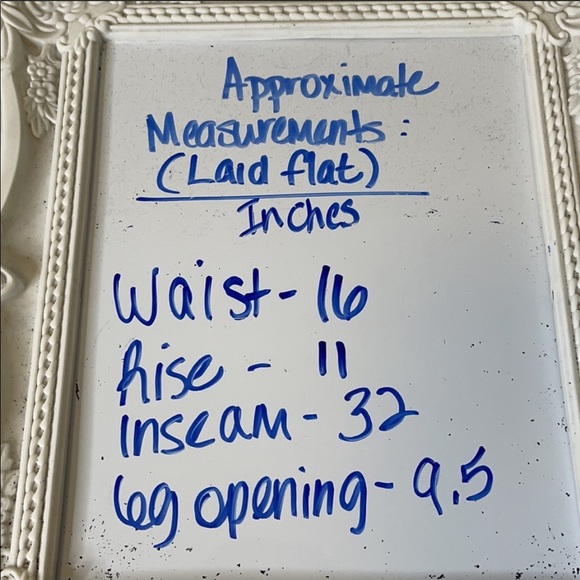 Approximate
Measurements:
(Laid flat)
Inches
Waist - 16
Rise - 11
inseam - 32
leg opening - 9.5